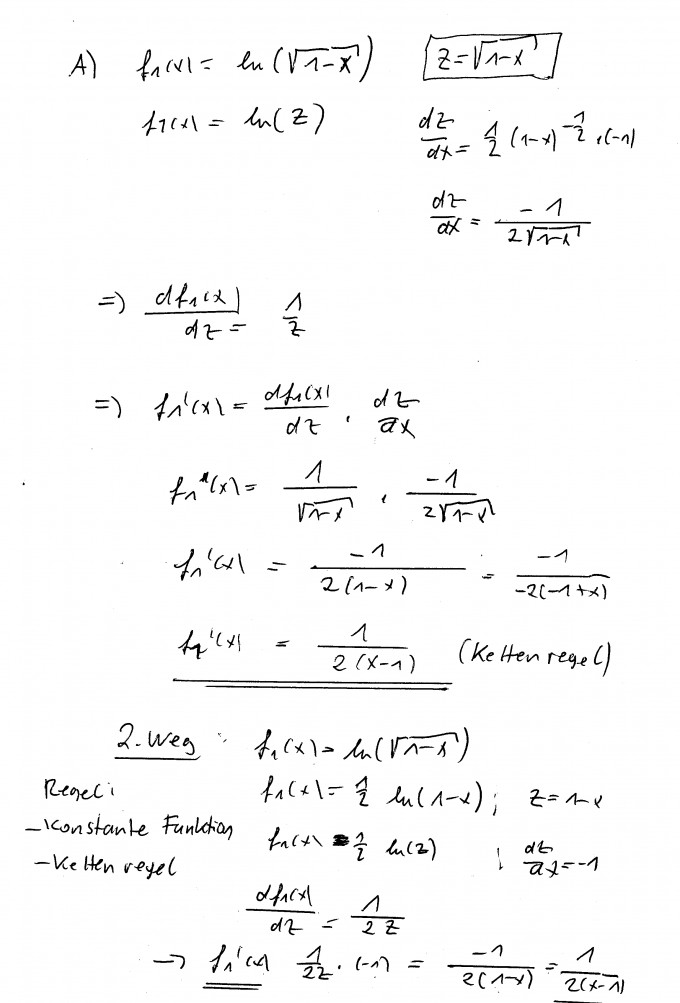 A) f₁(x) = ln(√(1-x)) z = √(1-x)
f₁(x) = ln(z) dz/dx = 1/2 (1-x)^(-1/2) · (-1)
dz/dx = -1/(2√(1-x))
=> df₁(x)/dz = 1/z
=> f₁'(x) = df₁(x)/dz · dz/dx
f₁'(x) = 1/√(1-x) · -1/(2√(1-x))
f₁'(x) = -1/(2(1-x)) = -1/(-2(-1+x))
f₁'(x) = 1/(2(x-1)) (Kettenregel)
2. Weg : f₁(x) = ln(√(1-x))
Regel: f₁(x) = 1/2 ln(1-x) ; z = 1-x
- Konstante Funktion f₁(x) = 1/2 ln(z) ; dz/dx = -1
- Kettenregel
df₁(x)/dz = 1/(2z)
→ f₁'(x) 1/(2z) · (-1) = -1/(2(1-x)) = 1/(2(x-1))